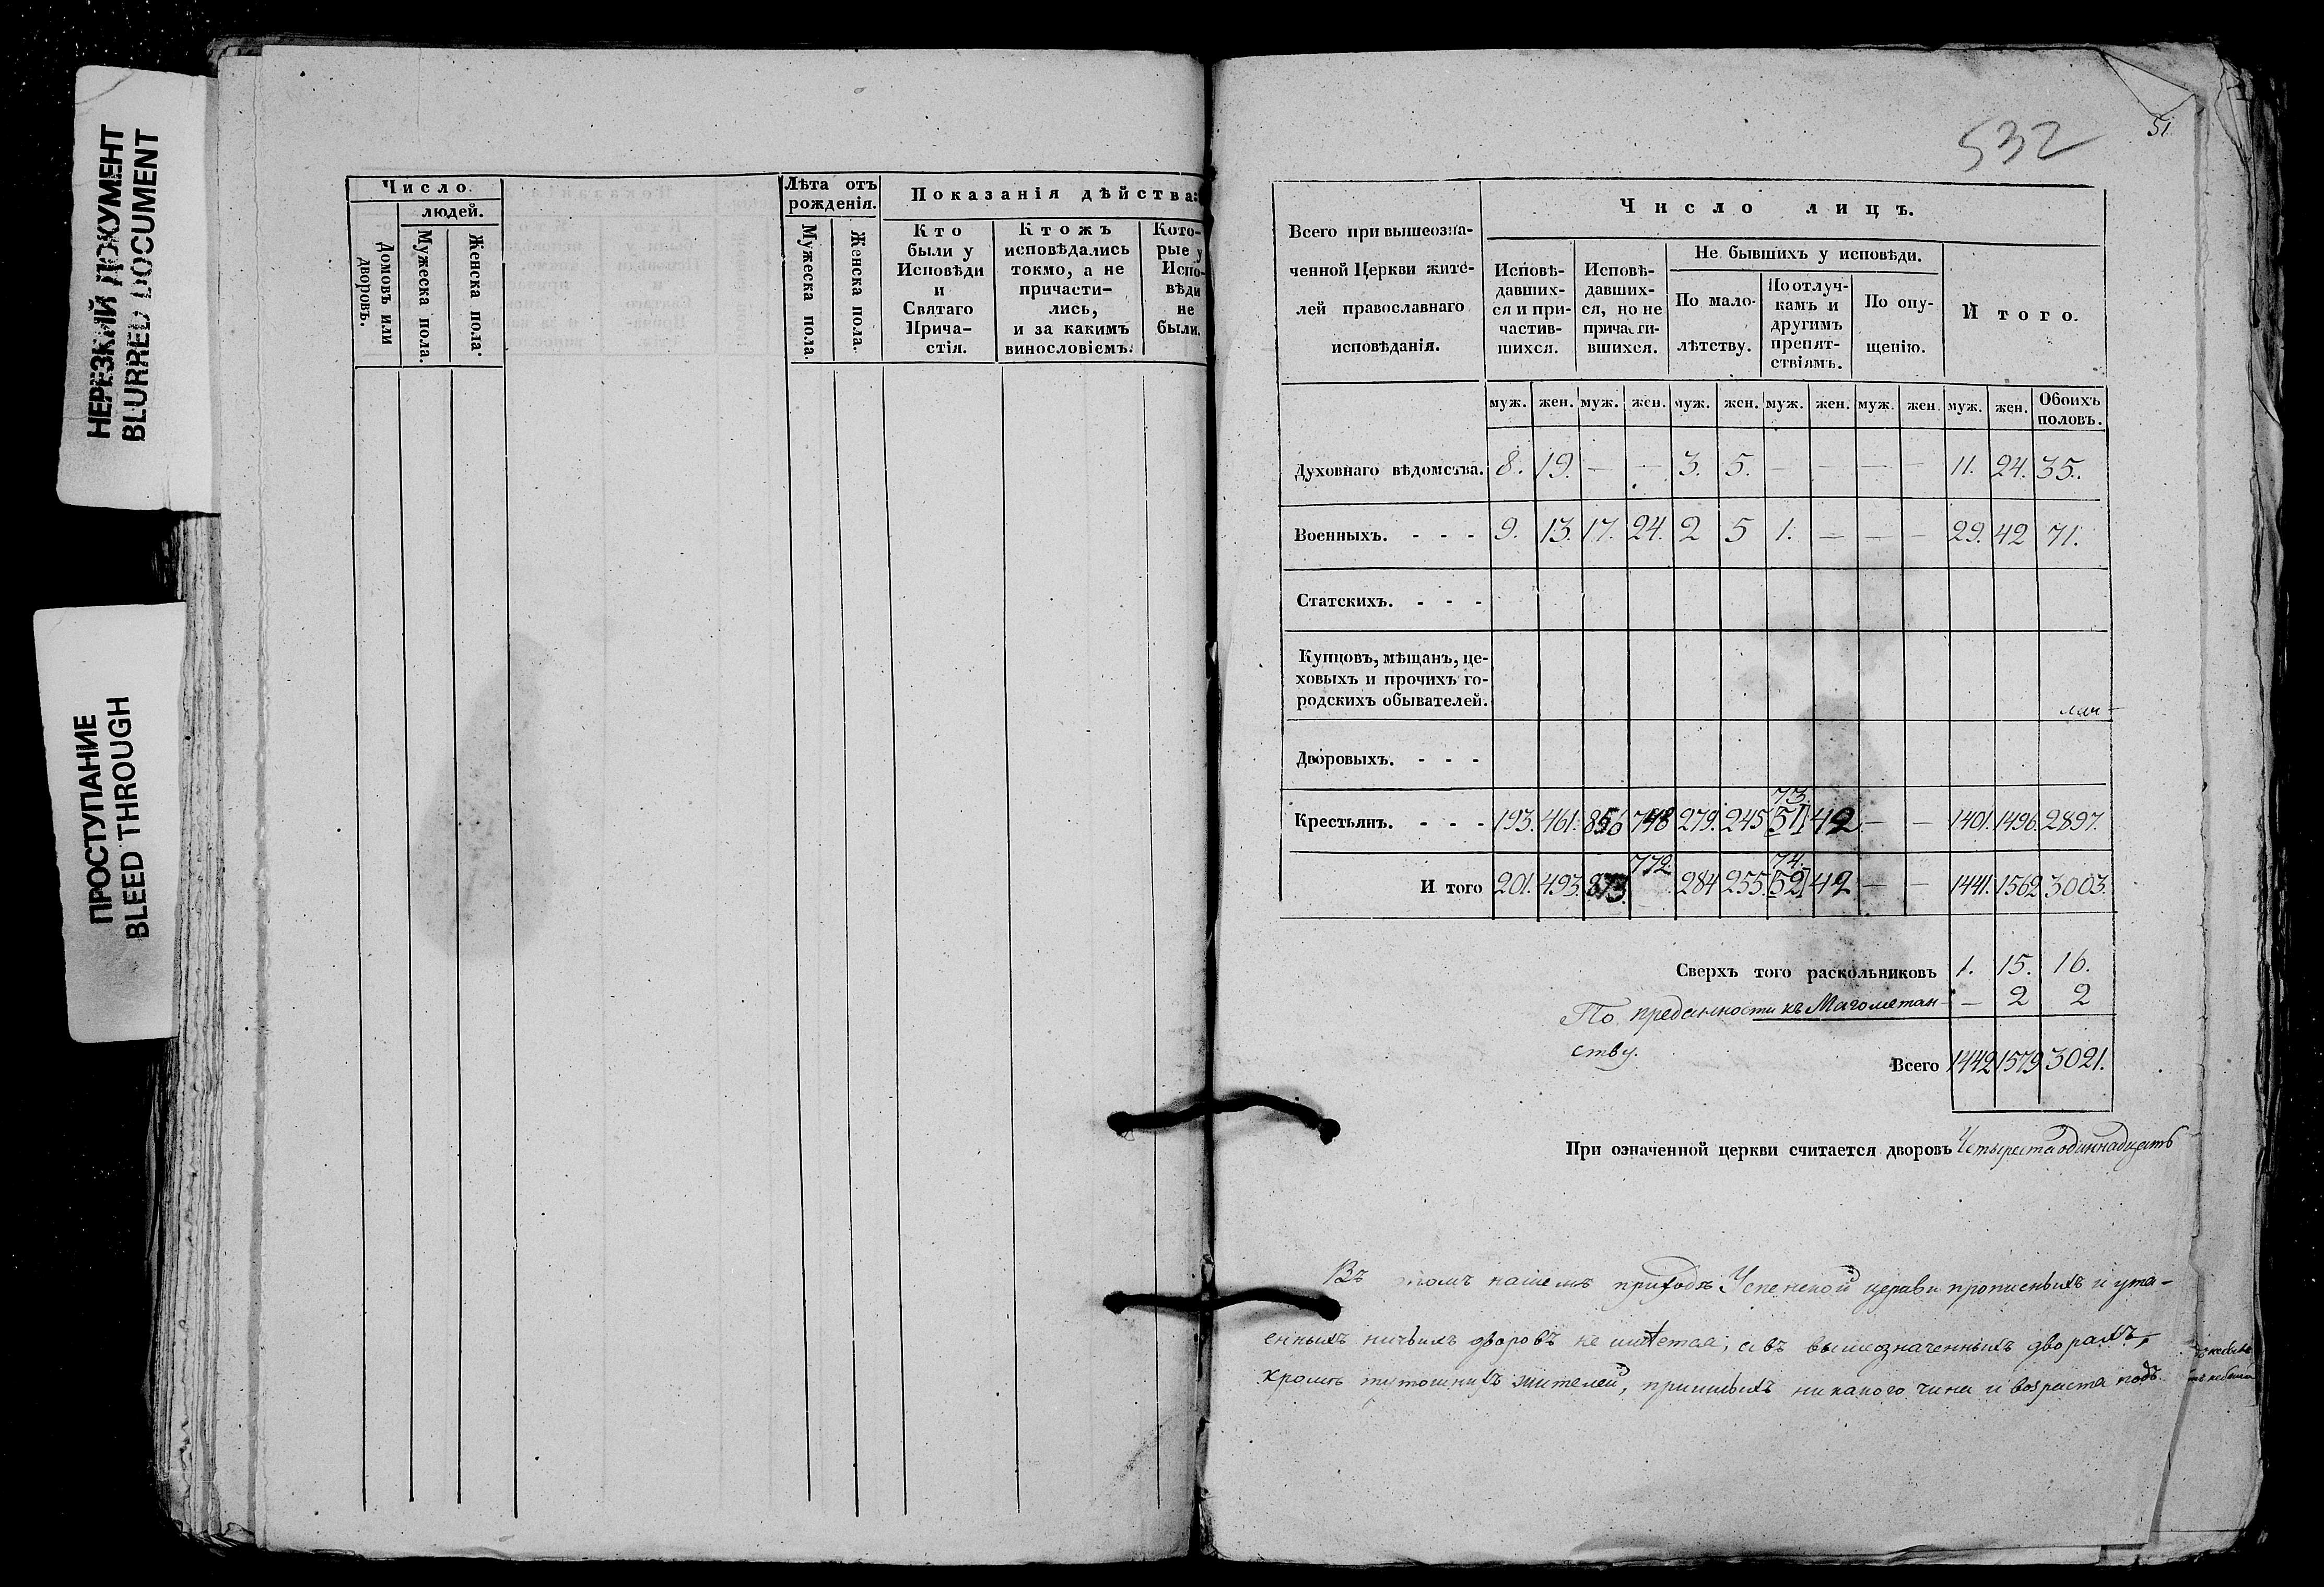 НЕРЕЗКИЙ ДОКУМЕНТ
BLURRED DOCUMENT
ПРОСТУПАНИЕ
BLEED THROUGH
Число
людей.
Домовъ или дворовъ.
Мужеска пола.
Женска пола.
Лѣта отъ рожденія.
Мужеска пола.
Женска пола.
Показанія дѣйства:
Кто были у Исповѣди и Святаго Прича-стія.
Ктожъ исповѣдались токмо, а не причасти-лись, и за какимъ винословіемъ.
Кото-рые у Испо-вѣди не были.
532
51
Всего при вышеозна-
ченной Церкви жите-
лей православнаго
исповѣданія.
Число лицъ.
Исповѣ-давших-ся и при-частив-шихся.
Исповѣ-давших-ся, но не причасти-вшихся.
Не бывшихъ у исповѣди.
По мало-лѣтству.
По отлуч-камъ и другимъ препят-ствіямъ.
По опу-щенію.
Итого.
муж. жен. муж. жен. муж. жен. муж. жен. муж. жен. муж. жен. Обоихъ половъ.
Духовнаго вѣдомства. 8. 19. — — 3. 5. — — — — 11. 24. 35.
Военныхъ. - - - 9. 13. 17. 24. 2 5 1. — — — 29. 42 71.
Статскихъ. - - -
Купцовъ, мѣщанъ, це-
ховыхъ и прочихъ го-
родскихъ обывателей.
Дворовыхъ. - - -
73.
Крестьянъ. - - - 193. 461. 856 748 279. 245 51 42 — — 1401. 1496. 2897.
772. 74.
И того 201. 493. 873. 284 255. 52 42 — — 1441. 1562 3003.
Сверхъ того раскольниковъ 1. 15. 16.
По преданности къ Магометан- — 2 2
ству.
Всего 1442 1579 3021.
При означенной церкви считается дворовъ Четыреста одиннадцать
Въ томъ нашемъ приходѣ Успенской церкви прописныхъ и ута-
енныхъ ничьихъ дворовъ не имѣется; а въ вышеозначенныхъ дворахъ,
кромѣ тутошнихъ жителей, пришлыхъ никакого чина и возраста людъ